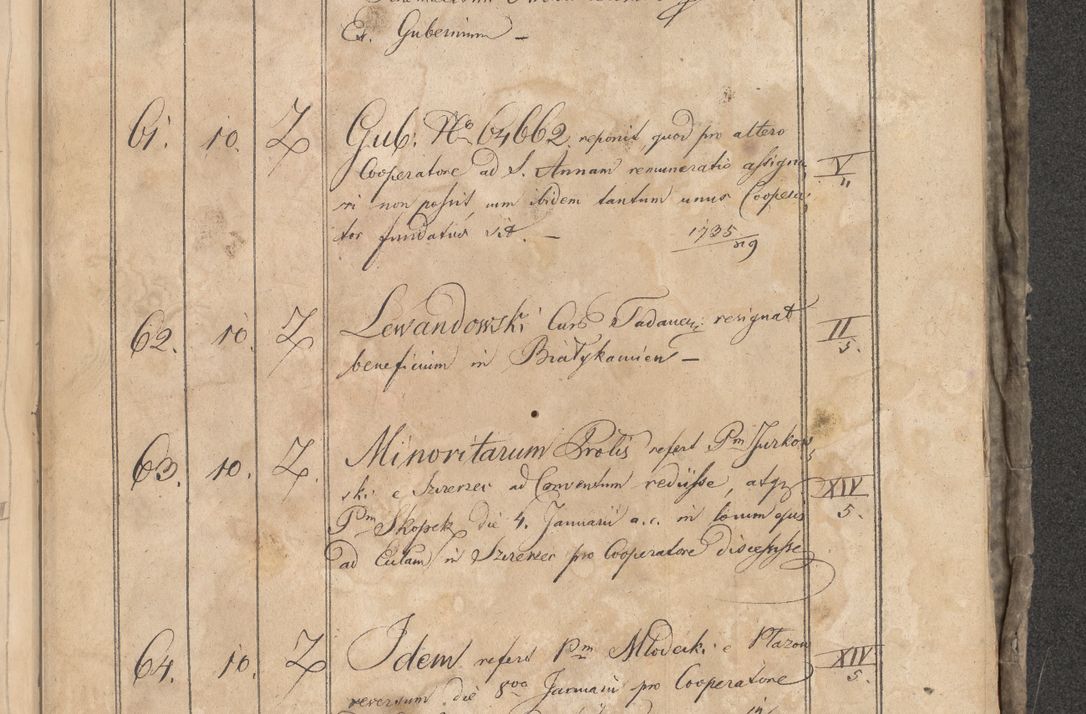 Ex. Gubernium –
61. 10. Z Gub. No 64662. reponit, quod pro altero
Cooperatore ad S. Annam remuneratio assigna V
ri non possit cum ibidem tantum unus Coopera 11
tor fundatus sit. – 1735/319
62. 10. Z Lewandowski Cura resignat II
beneficium in Białykamien – 5.
63. 10. Z. Minoritarum Prölis refert Pm Jurkow
ski e Szczerzec ad Conventum rediisse, atqz XIV
Pm Skopek die 4. Januarii a.c. in locum ejus 5.
ad Curam in Szczerzec pro Cooperatore discessisse
64. 10. Z Idem refert Pm Młodecki e Płazow XIV
reversum die 8va Januarii pro Cooperatore 5.